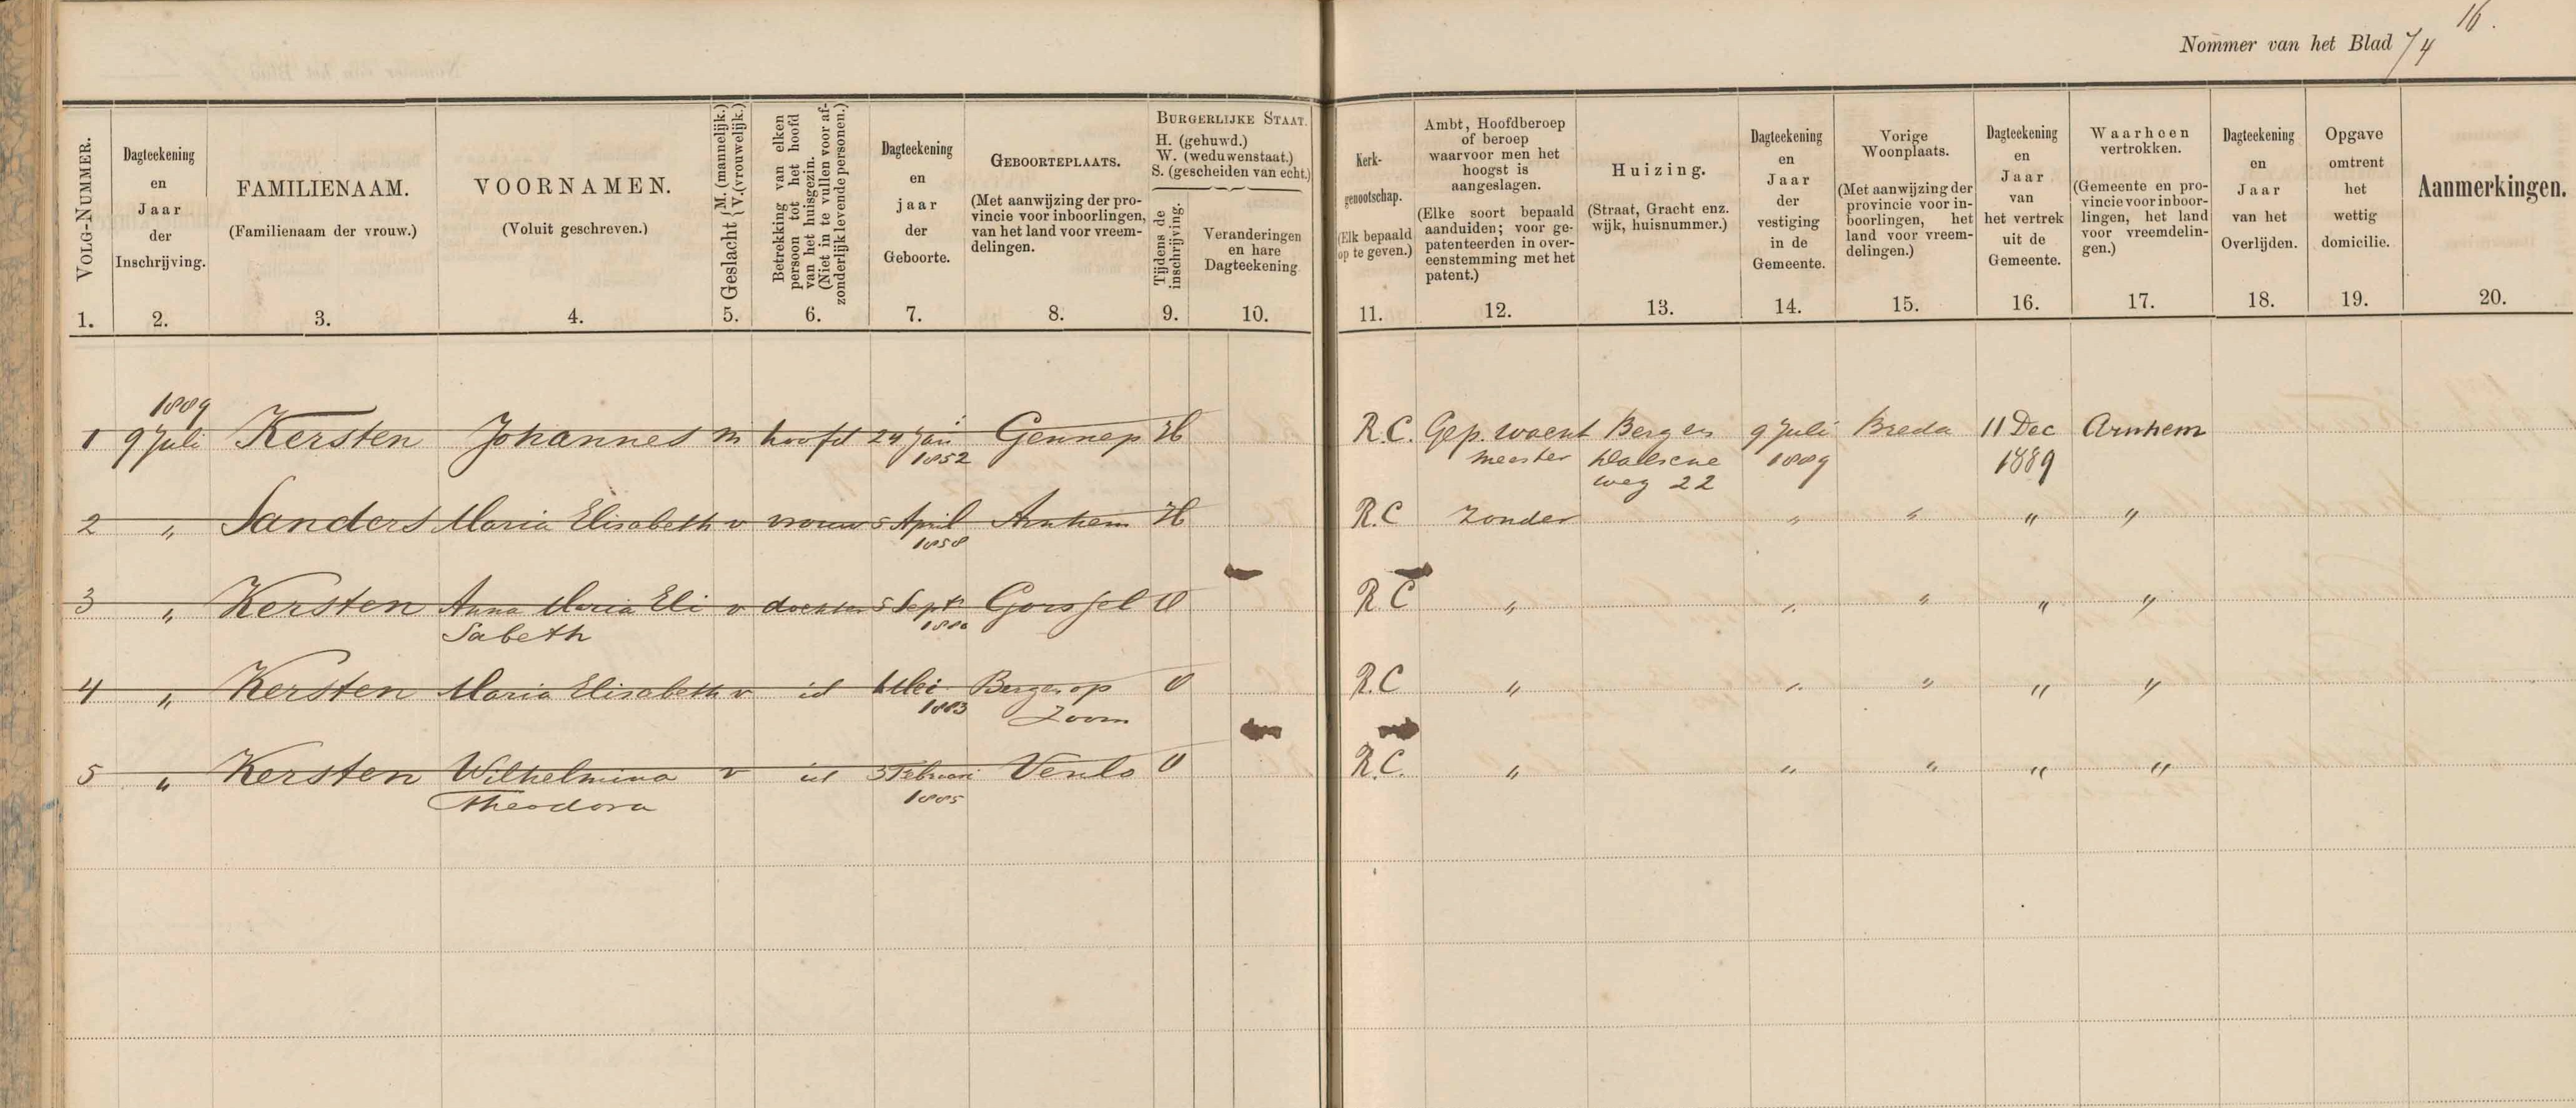 16.
Nommer van het Blad 74
VOLG-NUMMER.
1.
Dagteekening
en
Jaar
der
Inschrijving.
2.
FAMILIENAAM.
(Familienaam der vrouw.)
3.
VOORNAMEN.
(Voluit geschreven.)
4.
Geslacht { M. (mannelijk.)
V. (vrouwelijk.)
5.
Betrekking van elken
persoon tot het hoofd
van het huisgezin.
(Niet in te vullen voor af-
zonderlijk levende personen.)
6.
Dagteekening
en
jaar
der
Geboorte.
7.
GEBOORTEPLAATS.
(Met aanwijzing der pro-
vincie voor inboorlingen,
van het land voor vreem-
delingen.
8.
BURGERLIJKE STAAT.
H. (gehuwd.)
W. (weduwenstaat.)
S. (gescheiden van echt.)
Tijdens de
inschrijving.
9.
Veranderingen
en hare
Dagteekening
10.
Kerk-
genootschap.
(Elk bepaald
op te geven.)
11.
Ambt, Hoofdberoep
of beroep
waarvoor men het
hoogst is
aangeslagen.
(Elke soort bepaald
aanduiden; voor ge-
patenteerden in over-
eenstemming met het
patent.)
12.
Huizing.
(Straat, Gracht enz.
wijk, huisnummer.)
13.
Dagteekening
en
Jaar
der
vestiging
in de
Gemeente.
14.
Vorige
Woonplaats.
(Met aanwijzing der
provincie voor in-
boorlingen, het
land voor vreem-
delingen.)
15.
Dagteekening
en
Jaar
van
het vertrek
uit de
Gemeente.
16.
Waarheen
vertrokken.
(Gemeente en pro-
vincie voor inboor-
lingen, het land
voor vreemdelin-
gen.)
17.
Dagteekening
en
Jaar
van het
Overlijden.
18.
Opgave
omtrent
het
wettig
domicilie.
19.
Aanmerkingen.
20.
1889
1 9 Juli Kersten Johannes m hoofd 24 Jan Gennep H R.C. Gep. wacht Berg en 9 Juli Breda 11 Dec Arnhem
1852 meester Dalsche 1889 1889
weg 22
2 " Sanders Maria Elisabeth v vrouw 5 April Arnhem H R.C Zonder " " " "
1858
3 " Kersten Anna Maria Eli v dochter 5 Sept Gorssel O R.C " " " " "
Sabeth 1880
4 " Kersten Maria Elisabeth v id Mei Bergen op O R.C " " " " "
1883 Zoom
5 " Kersten Wilhelmina v id 3 Februari Venlo O R.C. " " " " "
Theodora 1885